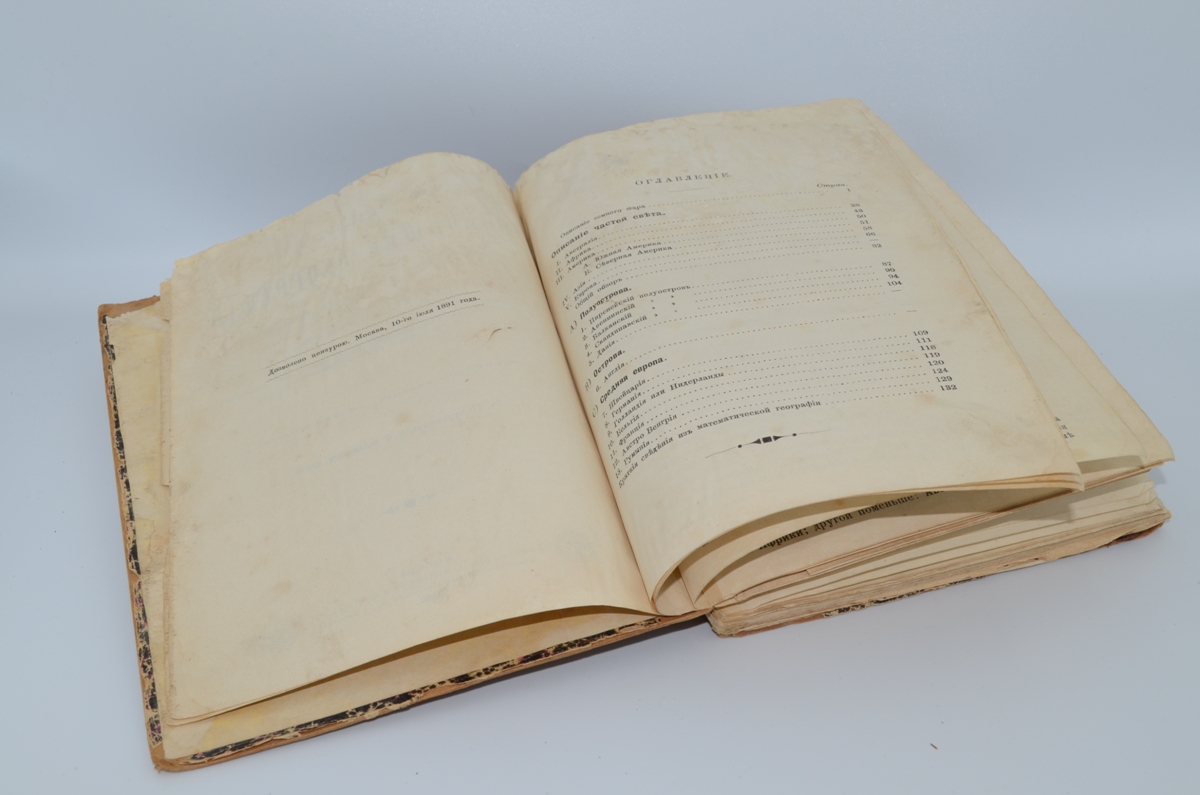 Дозволено цензурою. Москва, 10-го іюля 1891 года.
ОГЛАВЛЕНІЕ.
Стран.
Описаніе земного шара 1
Описаніе частей свѣта.
I. Австралія 39
II. Африка 43
III. Америка 50
А. Южная Америка 51
Б. Сѣверная Америка 58
IV. Азія 66
V. Европа —
Общій обзоръ 82
А) Полуострова.
1. Пиренейскій полуостровъ 87
2. Апеннинскій „ „ 90
3. Балканскій „ „ 94
4. Скандинавскій „ „ 104
5. Данія —
В) Острова.
6. Англія —
С) Средняя европа.
7. Швейцарія 109
8. Германія 111
9. Голландія или Нидерланды 118
10. Бельгія 119
11. Франція 120
12. Австро Венгрія 124
13. Румынія 129
Краткія свѣдѣнія изъ математической географіи 132
Африки; другой поменьше: